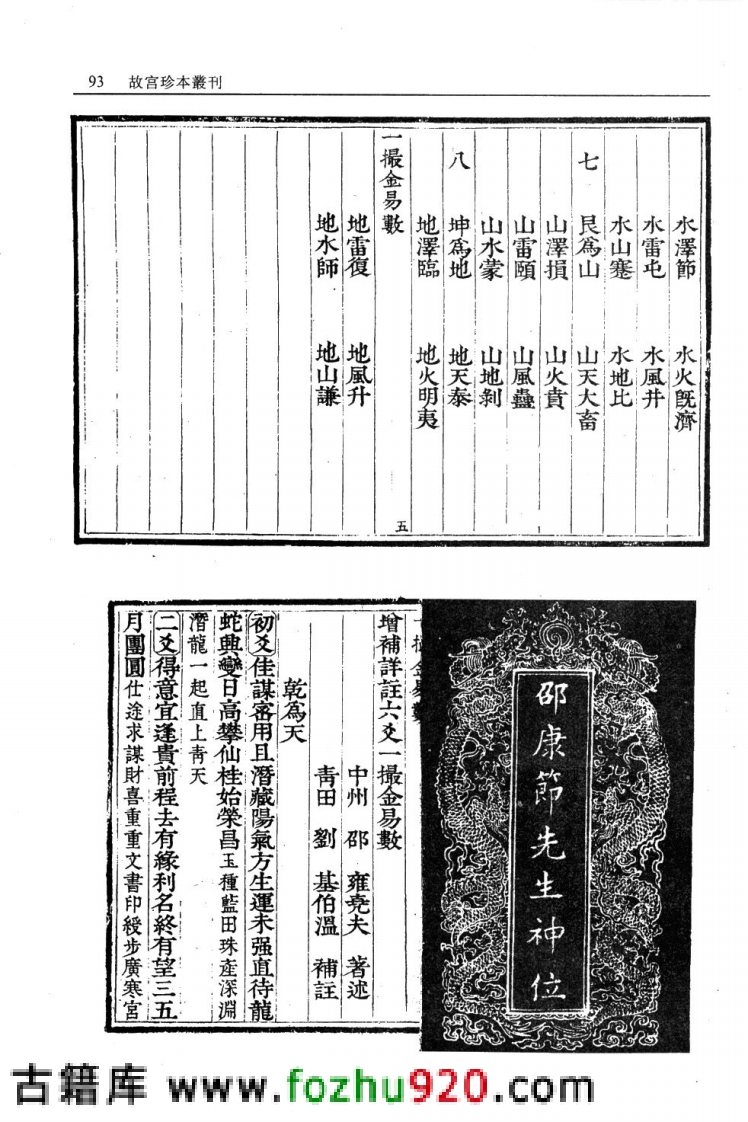 93 故宮珍本叢刊
水澤節 水火既濟
水雷屯 水風井
水山蹇 水地比
七 艮爲山 山天大畜
山澤損 山火賁
山雷頤 山風蠱
山水蒙 山地剝
八 坤爲地 地天泰
地澤臨 地火明夷
一撮金易數 五
地雷復 地風升
地水師 地山謙
邵康節先生神位
一撮金易數
增補詳註六爻一撮金易數
中州 邵 雍堯夫 著述
青田 劉 基伯溫 補註
乾爲天
初爻佳謀密用且潛藏陽氣方生運未强直待龍
蛇興變日高攀仙桂始榮昌玉種藍田珠產深淵
潛龍一起直上靑天
二爻得意宜逢貴前程去有緣利名終有望三五
月團圓仕途求謀財喜重重文書印綬步廣寒宮
古籍库 www.fozhu920.com